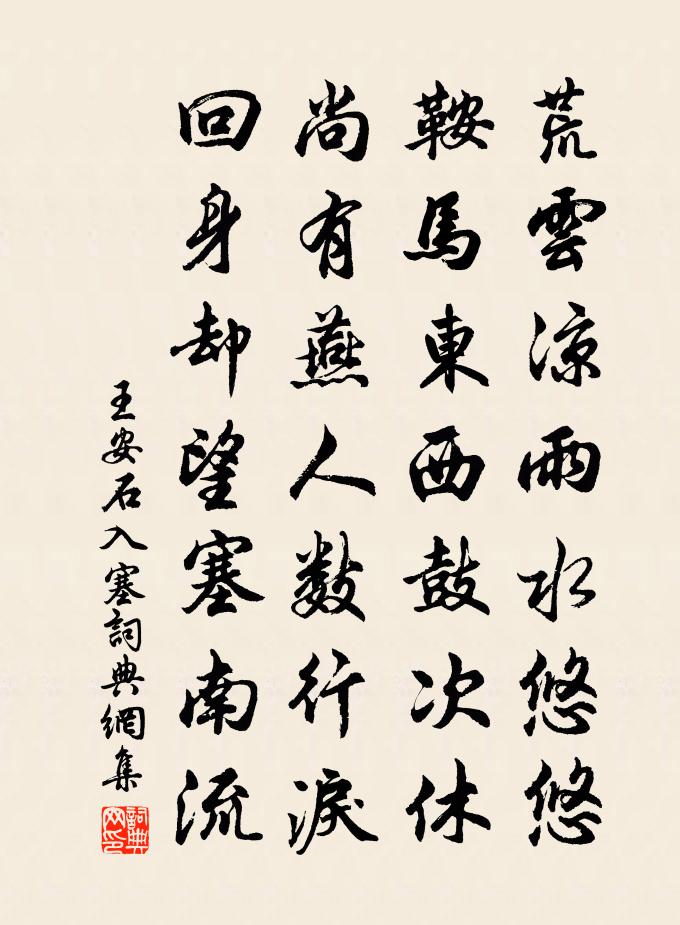 荒雲涼雨水悠悠
鞍馬東西鼓次休
尚有燕人數行淚
回身却望塞南流
王安石入塞詞典網集
詞典網印